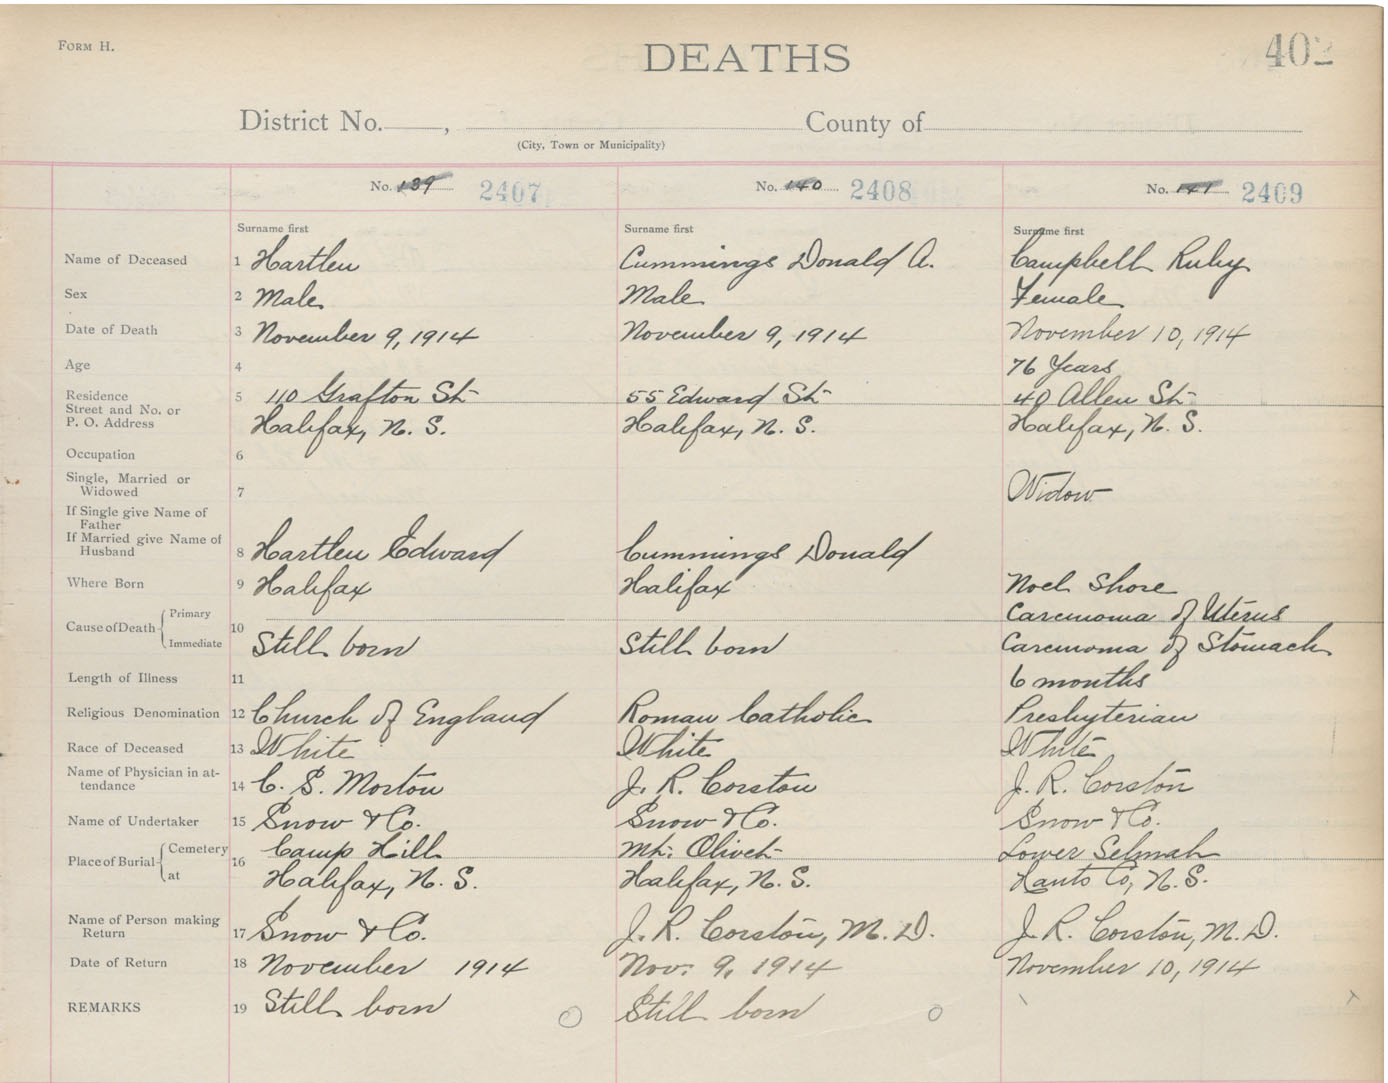 FORM H.
DEATHS
402
District No. , County of
(City, Town or Municipality)
No. 139 2407 No. 140 2408 No. 141 2409
Surname first Surname first Surname first
Name of Deceased 1 Hartlen Cummings Donald A. Campbell Ruby
Sex 2 Male Male Female
Date of Death 3 November 9, 1914 November 9, 1914 November 10, 1914
Age 4 76 Years
Residence 5 110 Grafton St. 55 Edward St. 40 Allen St.
Street and No. or
P. O. Address Halifax, N. S. Halifax, N. S. Halifax, N. S.
Occupation 6
Single, Married or
Widowed 7 Widow
If Single give Name of
Father
If Married give Name of
Husband 8 Hartlen Edward Cummings Donald
Where Born 9 Halifax Halifax Noel Shore
Cause of Death Primary Carcinoma of Uterus
10 Immediate Still born Still born Carcinoma of Stomach
Length of Illness 11 6 months
Religious Denomination 12 Church of England Roman Catholic Presbyterian
Race of Deceased 13 White White White
Name of Physician in at-
tendance 14 C. S. Morton J. R. Corston J. R. Corston
Name of Undertaker 15 Snow & Co. Snow & Co. Snow & Co.
Place of Burial Cemetery 16 Camp Hill Mt. Olivet Lower Selmah
at Halifax, N. S. Halifax, N. S. Hants Co, N. S.
Name of Person making
Return 17 Snow & Co. J. R. Corston, M. D. J. R. Corston, M. D.
Date of Return 18 November 1914 Nov. 9, 1914 November 10, 1914
REMARKS 19 Still born Still born